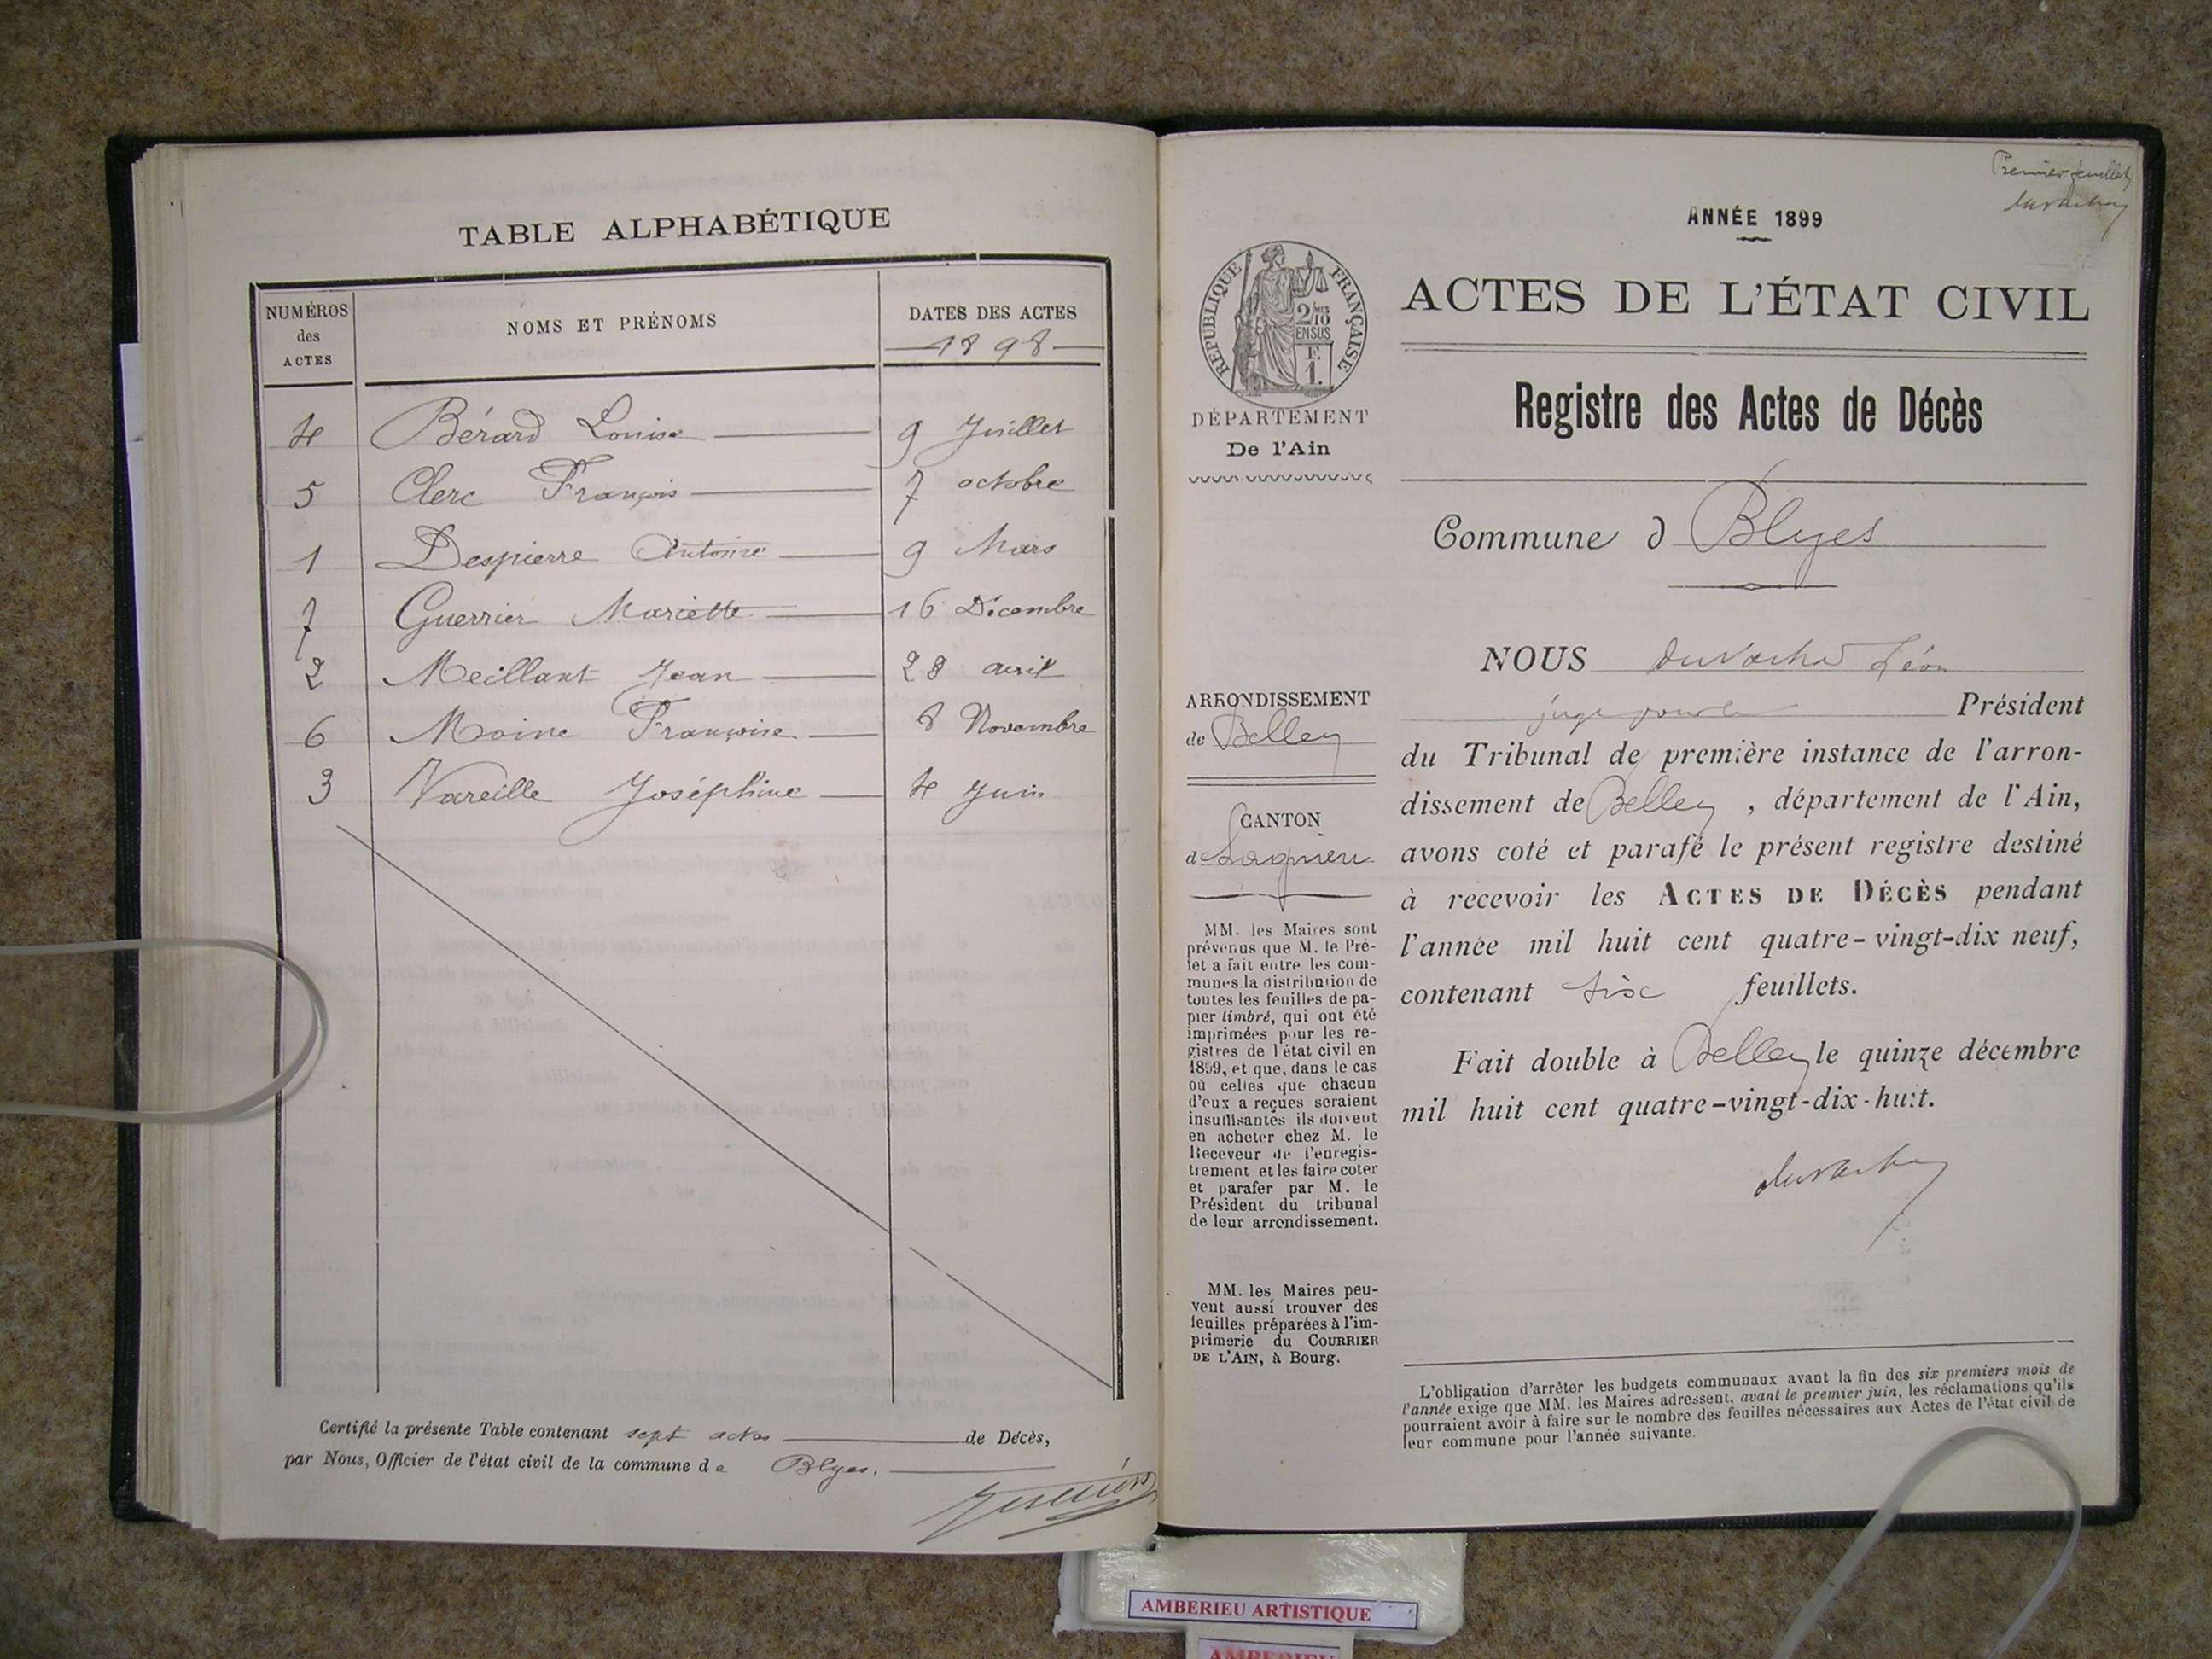 TABLE ALPHABÉTIQUE
NUMÉROS des ACTES
NOMS ET PRÉNOMS
DATES DES ACTES
1898
4 Bérard Louise 9 Juillet
5 Clerc François 7 octobre
1 Despierre Antoine 9 Mars
7 Guerrier Mariette 16 Décembre
2 Meillant Jean 28 avril
6 Moine Françoise 8 Novembre
3 Vareille Joséphine 4 Juin
Certifié la présente Table contenant sept actes de Décès,
par Nous, Officier de l'état civil de la commune de Blyes.
Premier feuillet
ANNÉE 1899
ACTES DE L'ÉTAT CIVIL
RÉPUBLIQUE FRANÇAISE
2/10
EN SUS
F.
1.
DÉPARTEMENT
De l'Ain
Registre des Actes de Décès
Commune d Blyes
ARRONDISSEMENT
de Belley
CANTON
de Lagnieu
MM. les Maires sont
prévenus que M. le Pré-
fet a fait entre les com-
munes la distribution de
toutes les feuilles de pa-
pier timbré, qui ont été
imprimées pour les re-
gistres de l'état civil en
1899, et que, dans le cas
où celles que chacun
d'eux a reçues seraient
insuffisantes ils doivent
en acheter chez M. le
Receveur de l'enregis-
trement et les faire coter
et parafer par M. le
Président du tribunal
de leur arrondissement.
MM. les Maires peu-
vent aussi trouver des
feuilles préparées à l'im-
primerie du COURRIER
DE L'AIN, à Bourg.
NOUS Léon
juge pour le Président
du Tribunal de première instance de l'arron-
dissement de Belley, département de l'Ain,
avons coté et parafé le présent registre destiné
à recevoir les ACTES DE DÉCÈS pendant
l'année mil huit cent quatre-vingt-dix neuf,
contenant six feuillets.
Fait double à Belley le quinze décembre
mil huit cent quatre-vingt-dix-huit.
L'obligation d'arrêter les budgets communaux avant la fin des six premiers mois de
l'année exige que MM. les Maires adressent, avant le premier juin, les réclamations qu'ils
pourraient avoir à faire sur le nombre des feuilles nécessaires aux Actes de l'état civil de
leur commune pour l'année suivante.
AMBERIEU ARTISTIQUE
AMBERIEU